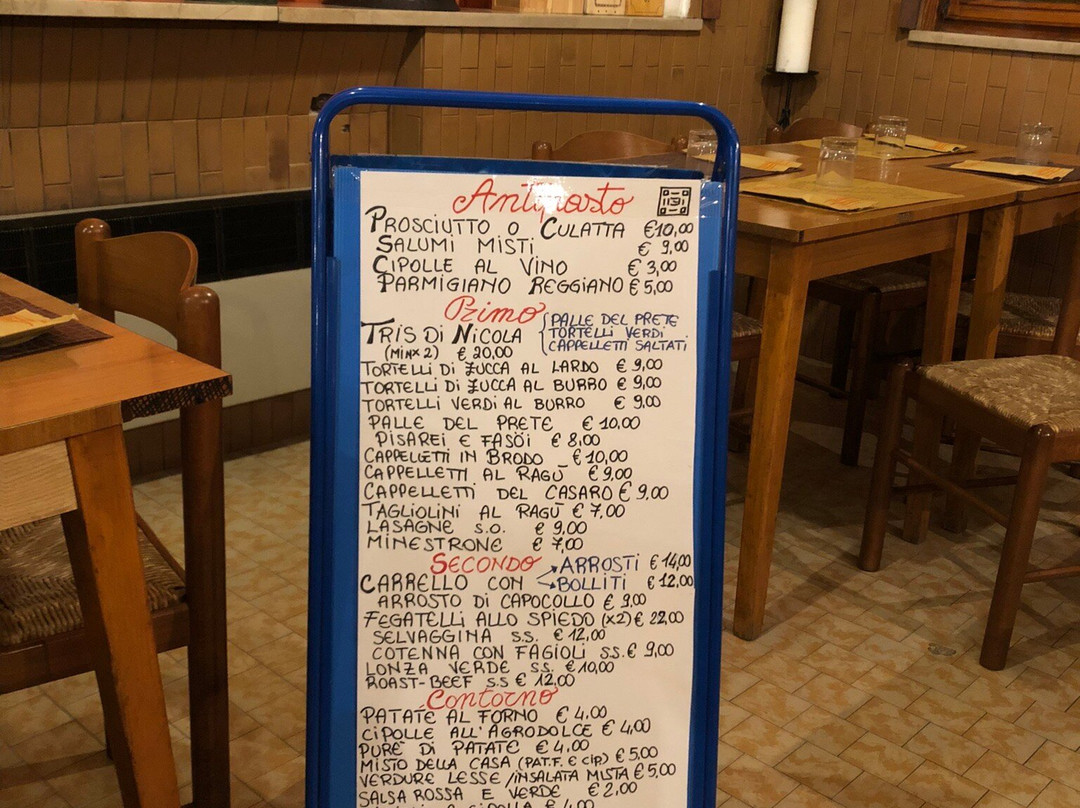 Antipasto
PROSCIUTTO O CULATTA €10,00
SALUMI MISTI € 9,00
CIPOLLE AL VINO € 3,00
PARMIGIANO REGGIANO € 5,00
Primo
TRIS DI NICOLA { PALLE DEL PRETE
TORTELLI VERDI
CAPPELLETTI SALTATI
(MINX2) € 20,00
TORTELLI DI ZUCCA AL LARDO € 9,00
TORTELLI DI ZUCCA AL BURRO € 9,00
TORTELLI VERDI AL BURRO € 9,00
PALLE DEL PRETE € 10,00
PISAREI E FASÖI € 8,00
CAPPELLETTI IN BRODO € 10,00
CAPPELLETTI AL RAGÙ € 9,00
CAPPELLETTI DEL CASARO € 9,00
TAGLIOLINI AL RAGÙ € 7,00
LASAGNE S.O. € 9,00
MINESTRONE € 7,00
SECONDO
CARRELLO CON ARROSTI € 14,00
BOLLITI € 12,00
ARROSTO DI CAPOCOLLO € 9,00
FEGATELLI ALLO SPIEDO (X2) € 22,00
SELVAGGINA S.S. € 12,00
COTENNA CON FAGIOLI S.S. € 9,00
LONZA VERDE S.S. € 10,00
ROAST-BEEF S.S € 12,00
Contorno
PATATE AL FORNO € 4,00
CIPOLLE ALL'AGRODOLCE € 4,00
PURÈ DI PATATE € 4,00
MISTO DELLA CASA (PAT.F. E CIP.) € 5,00
VERDURE LESSE/INSALATA MISTA € 5,00
SALSA ROSSA E VERDE € 2,00
CIPOLLA € 4,00